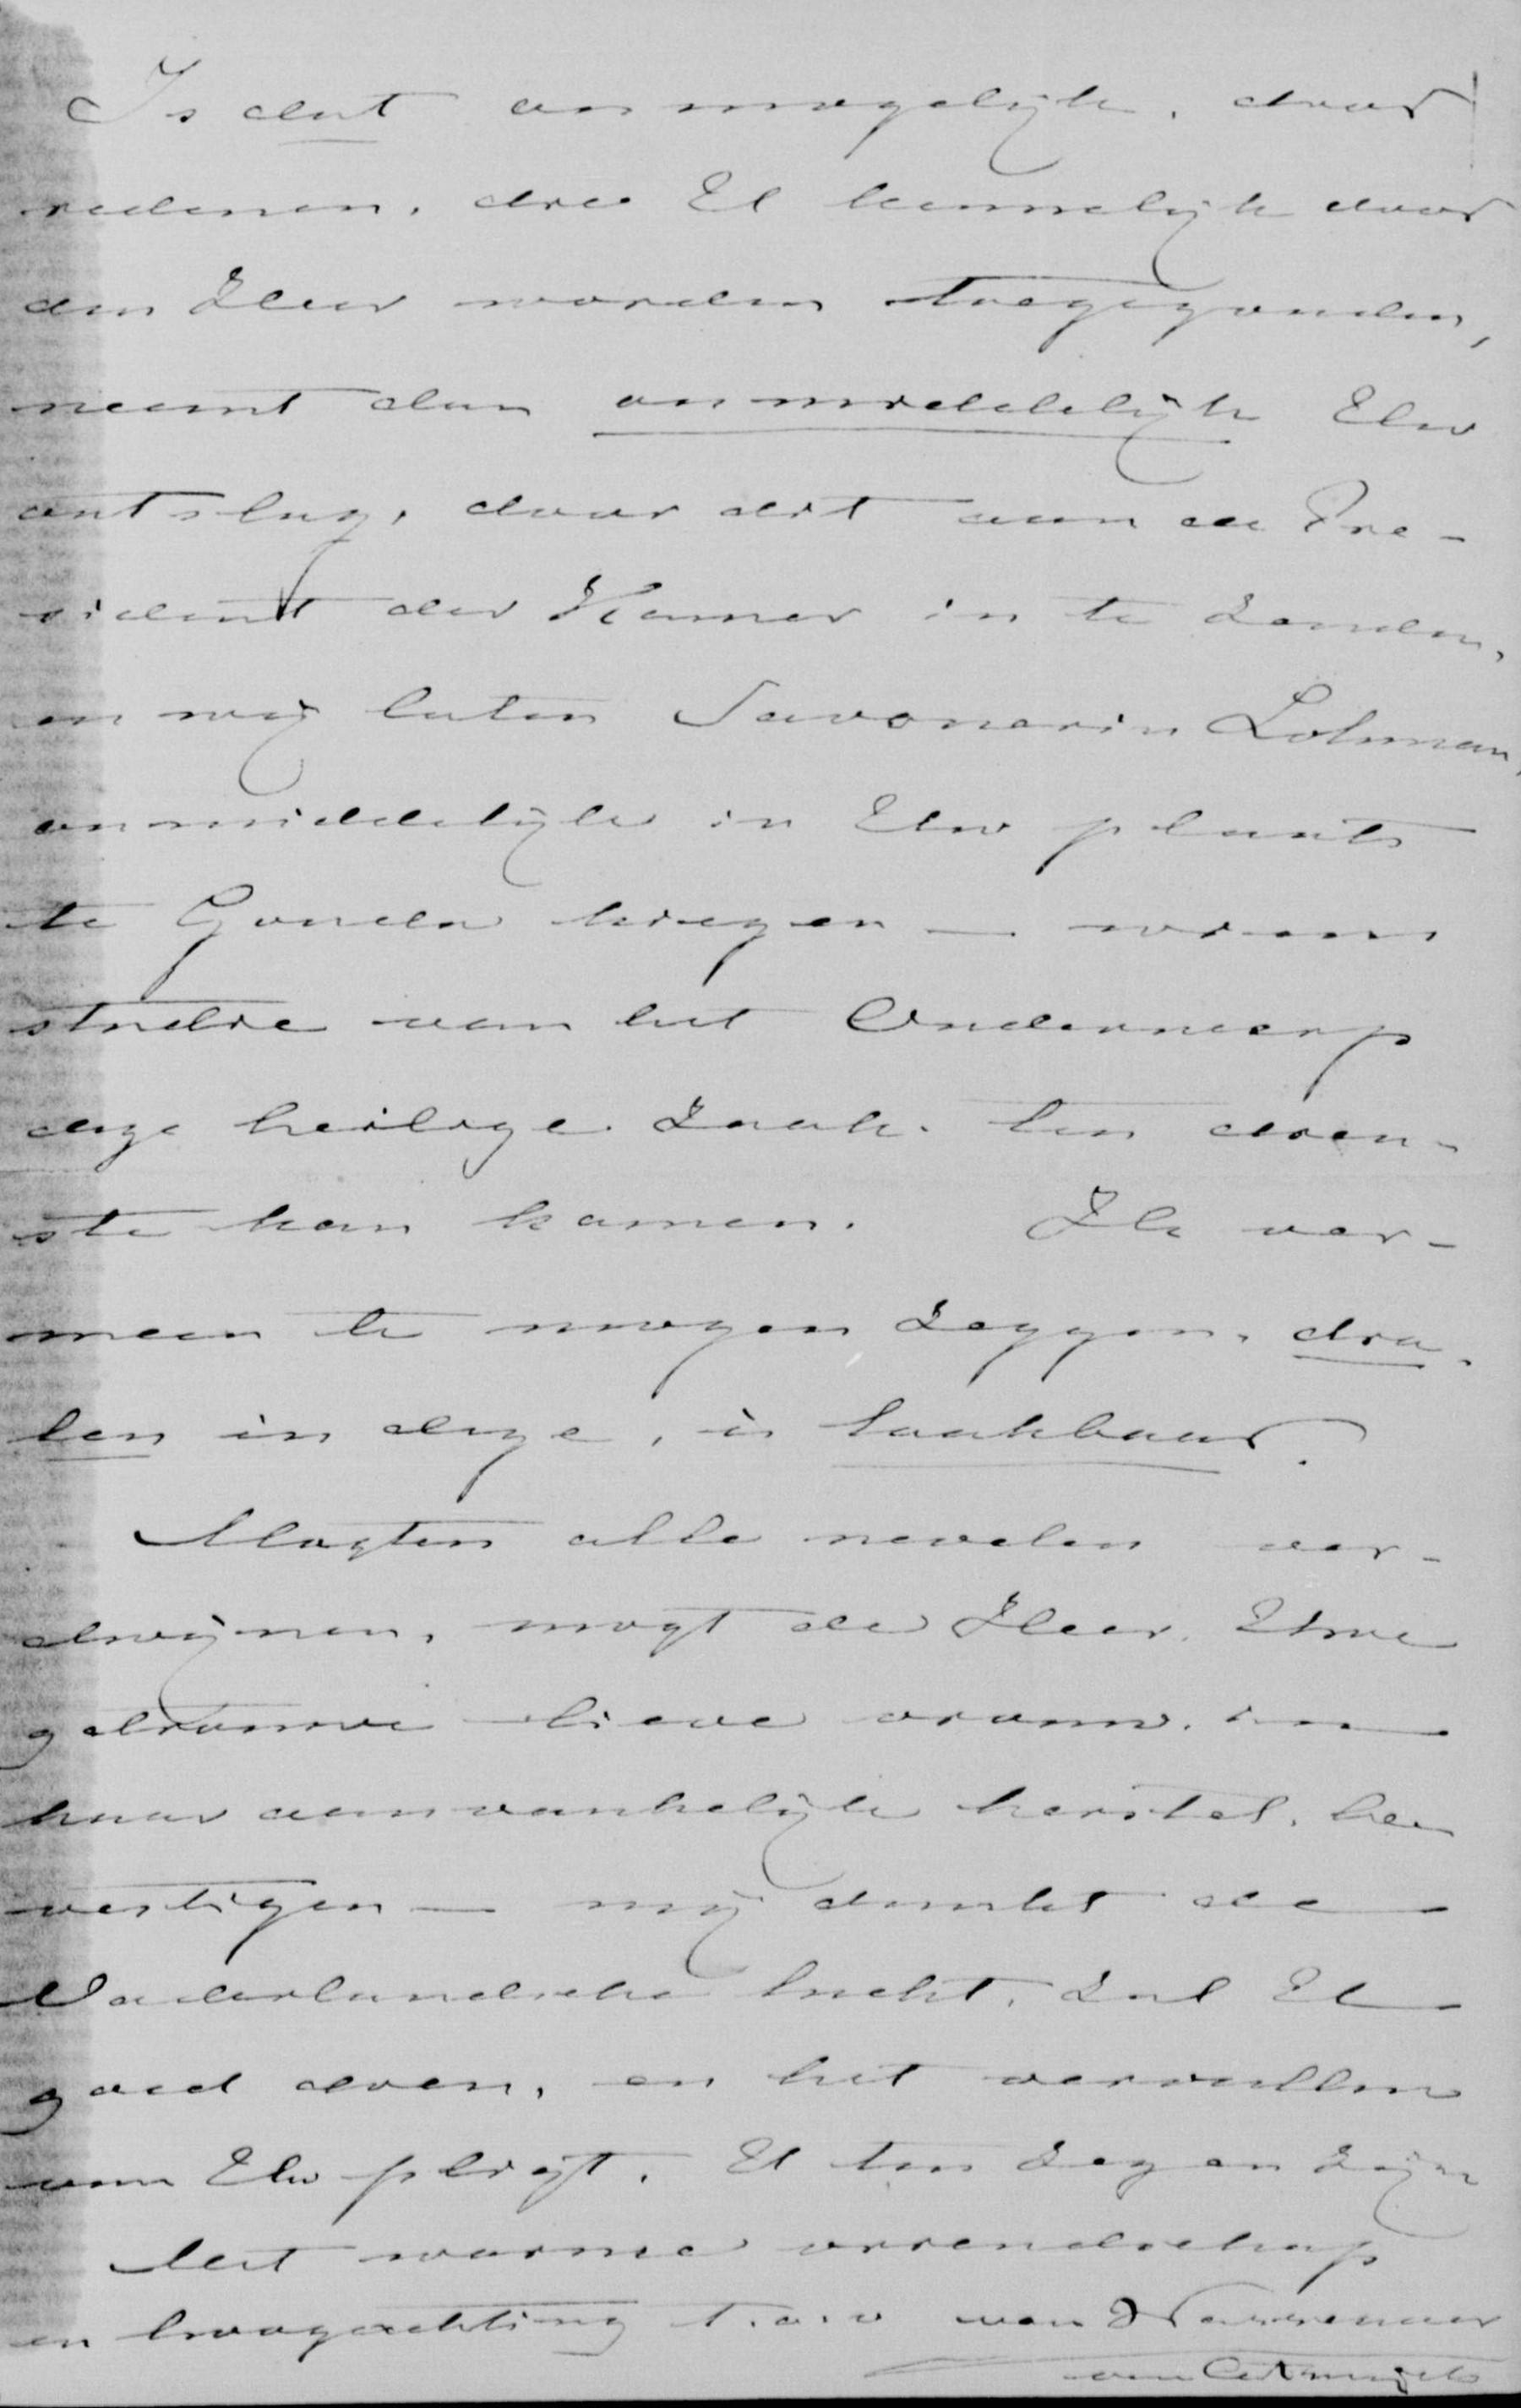 Is dat onmogelijk, door
redenen, die U kennelijk door
den Heer worden toegezonden,
neemt dan onmiddelijk Uw
ontslag, door dit aan de Pre-
sident der Kamer in te zenden,
en wij laten Savornin Lohman,
onmiddelijk in Uw plaats
te Gouda kiezen — wiens
studie van het Onderwerp
deze heilige zaak. ten dien-
ste kan komen. Ik ver-
meen te mogen zeggen, dra-
len in deze, is laakbaar.
Mogten alle nevelen ver-
dwijnen, mogt de Heer, Uwe
getrouwe lieve vrouw, in
haar aanvankelijk herstel, be
vestigen — mij dunkt de
Vaderlandsche lucht, zal U
goed doen, en het vervullen
van Uw pligt, U ten zegen zijn
Met warme vriendschap
en hoogachting t. a. v van Wassenaer
van Catwijck